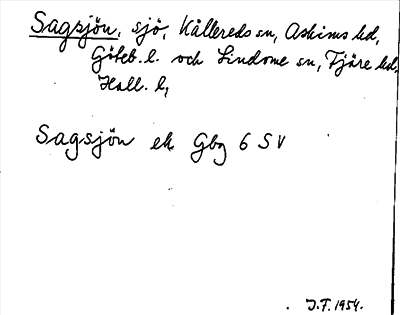 Sagsjön, sjö, Kållereds sn, Askims hd,
Göteb. l. och Lindome sn, Fjäre hd,
Hall. l,
Sagsjön ek Gbg 6 SV
J.F. 1954.